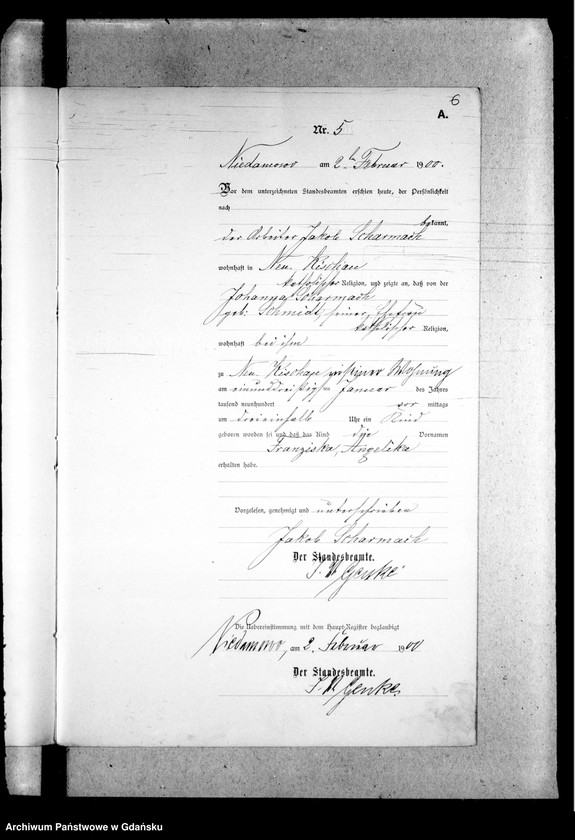 6
A.
Nr. 5
Niedamowo am 2ten Februar 1900.
Vor dem unterzeichneten Standesbeamten erschien heute, der Persönlichkeit
nach
bekannt,
der Arbeiter Jakob Scharmach
wohnhaft in Neu Kischau
katholischer Religion, und zeigte an, daß von der
Johanna Scharmach
geb: Schmidt, seiner Ehefrau
katholischer Religion,
wohnhaft bei ihm
zu Neu Kischau in seiner Wohnung
am einunddreißigsten Januar des Jahres
tausend neunhundert vor mittags
um dreieinhalb Uhr ein Kind
geboren worden sei und daß das Kind die Vornamen
Franziska, Angelika
erhalten habe.
Vorgelesen, genehmigt und unterschrieben
Jakob Scharmach
Der Standesbeamte.
Genke
Die Uebereinstimmung mit dem Haupt-Register beglaubigt
Niedamowo, am 2. Februar 1900
Der Standesbeamte.
Genke.
Archiwum Państwowe w Gdańsku